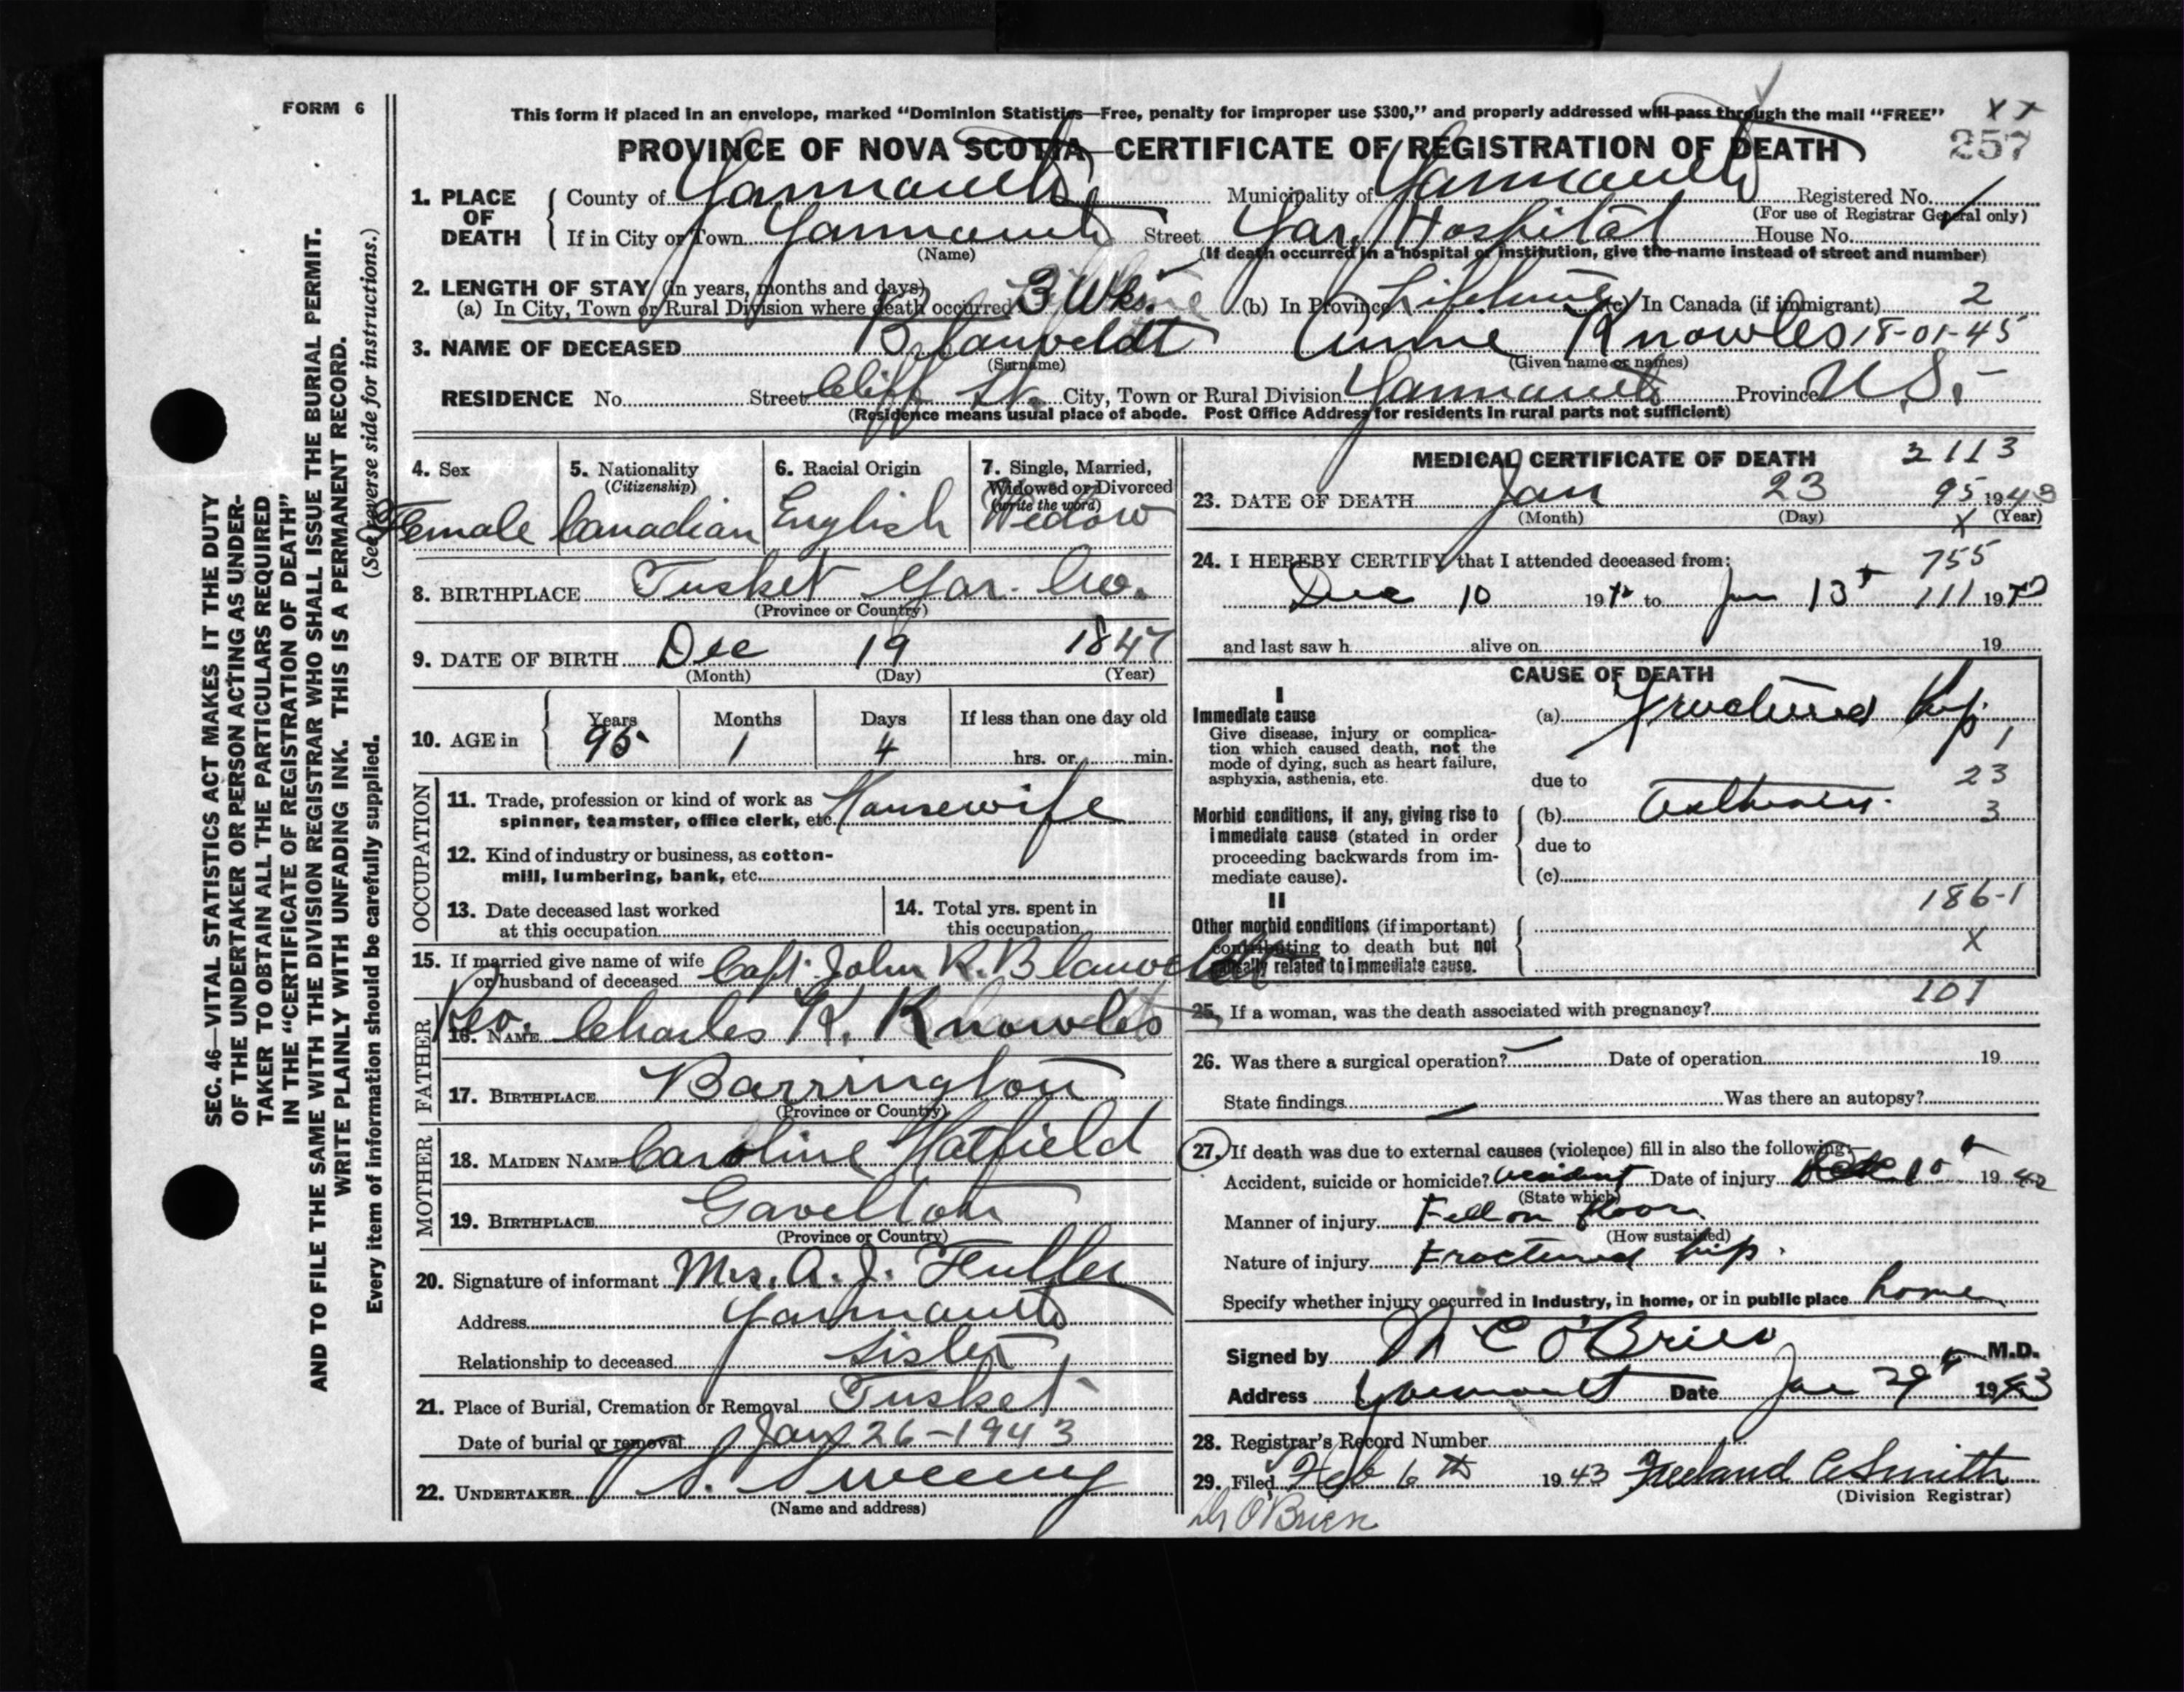 FORM 6
This form if placed in an envelope, marked "Dominion Statistics—Free, penalty for improper use $300," and properly addressed will pass through the mail "FREE" X X
PROVINCE OF NOVA SCOTIA—CERTIFICATE OF REGISTRATION OF DEATH 257
1. PLACE OF DEATH County of Yarmouth Municipality of Yarmouth Registered No.
(For use of Registrar General only)
If in City or Town Yarmouth Street Yar. Hospital House No.
(Name) (If death occurred in a hospital or institution, give the name instead of street and number)
2. LENGTH OF STAY (in years, months and days)
(a) In City, Town or Rural Division where death occurred 3 Wks. (b) In Province Lifetime (c) In Canada (if immigrant) 2
3. NAME OF DECEASED Blauveldt Annie Knowles 18-01-45
(Surname) (Given name or names)
RESIDENCE No. Street Cliff St. City, Town or Rural Division Yarmouth Province N.S.
(Residence means usual place of abode. Post Office Address for residents in rural parts not sufficient)
SEC. 46—VITAL STATISTICS ACT MAKES IT THE DUTY
OF THE UNDERTAKER OR PERSON ACTING AS UNDER-
TAKER TO OBTAIN ALL THE PARTICULARS REQUIRED
IN THE "CERTIFICATE OF REGISTRATION OF DEATH"
AND TO FILE THE SAME WITH THE DIVISION REGISTRAR WHO SHALL ISSUE THE BURIAL PERMIT.
WRITE PLAINLY WITH UNFADING INK. THIS IS A PERMANENT RECORD.
Every item of information should be carefully supplied. (See reverse side for instructions.)
4. Sex 5. Nationality 6. Racial Origin 7. Single, Married,
(Citizenship) Widowed or Divorced
(write the word)
Female Canadian English Widow
8. BIRTHPLACE Tusket Yar. Co.
(Province or Country)
9. DATE OF BIRTH Dec 19 1847
(Month) (Day) (Year)
10. AGE in Years Months Days If less than one day old
95 1 4 hrs. or min.
OCCUPATION
11. Trade, profession or kind of work as
spinner, teamster, office clerk, etc. Housewife
12. Kind of industry or business, as cotton-
mill, lumbering, bank, etc.
13. Date deceased last worked
at this occupation
14. Total yrs. spent in
this occupation
15. If married give name of wife
or husband of deceased Capt. John R. Blauveldt
FATHER
16. NAME Rev. Charles K. Knowles
17. BIRTHPLACE Barrington
(Province or Country)
MOTHER
18. MAIDEN NAME Caroline Hatfield
19. BIRTHPLACE Gavelton
(Province or Country)
20. Signature of informant Mrs. A. J. Fuller
Address Yarmouth
Relationship to deceased Sister
21. Place of Burial, Cremation or Removal Tusket
Date of burial or removal Jan 26-1943
22. UNDERTAKER S. Sweeny
(Name and address)
MEDICAL CERTIFICATE OF DEATH 2113
23. DATE OF DEATH Jan 23 95 1943
(Month) (Day) X (Year)
24. I HEREBY CERTIFY that I attended deceased from: 755
Dec 10 1942 to Jan 13 111 1943
and last saw h alive on 19
CAUSE OF DEATH
I
Immediate cause (a) Fractured hip. 1
Give disease, injury or complica-
tion which caused death, not the
mode of dying, such as heart failure,
asphyxia, asthenia, etc. due to 23
Morbid conditions, if any, giving rise to (b) Asthenia. 3
immediate cause (stated in order due to
proceeding backwards from im-
mediate cause). (c)
II 186-1
Other morbid conditions (if important)
contributing to death but not X
causally related to immediate cause.
25. If a woman, was the death associated with pregnancy? 101
26. Was there a surgical operation? — Date of operation 19
State findings — Was there an autopsy?
27. If death was due to external causes (violence) fill in also the following:
Accident, suicide or homicide? accident Date of injury Dec 10 1942
(State which)
Manner of injury Fell on floor
(How sustained)
Nature of injury Fractured hip.
Specify whether injury occurred in Industry, in home, or in public place home
Signed by C O'Brien M.D.
Address Yarmouth Date Jan 29 1943
28. Registrar's Record Number
29. Filed Feb 6th 1943 Freeland C Smith
(Division Registrar)
Dr O'Brien